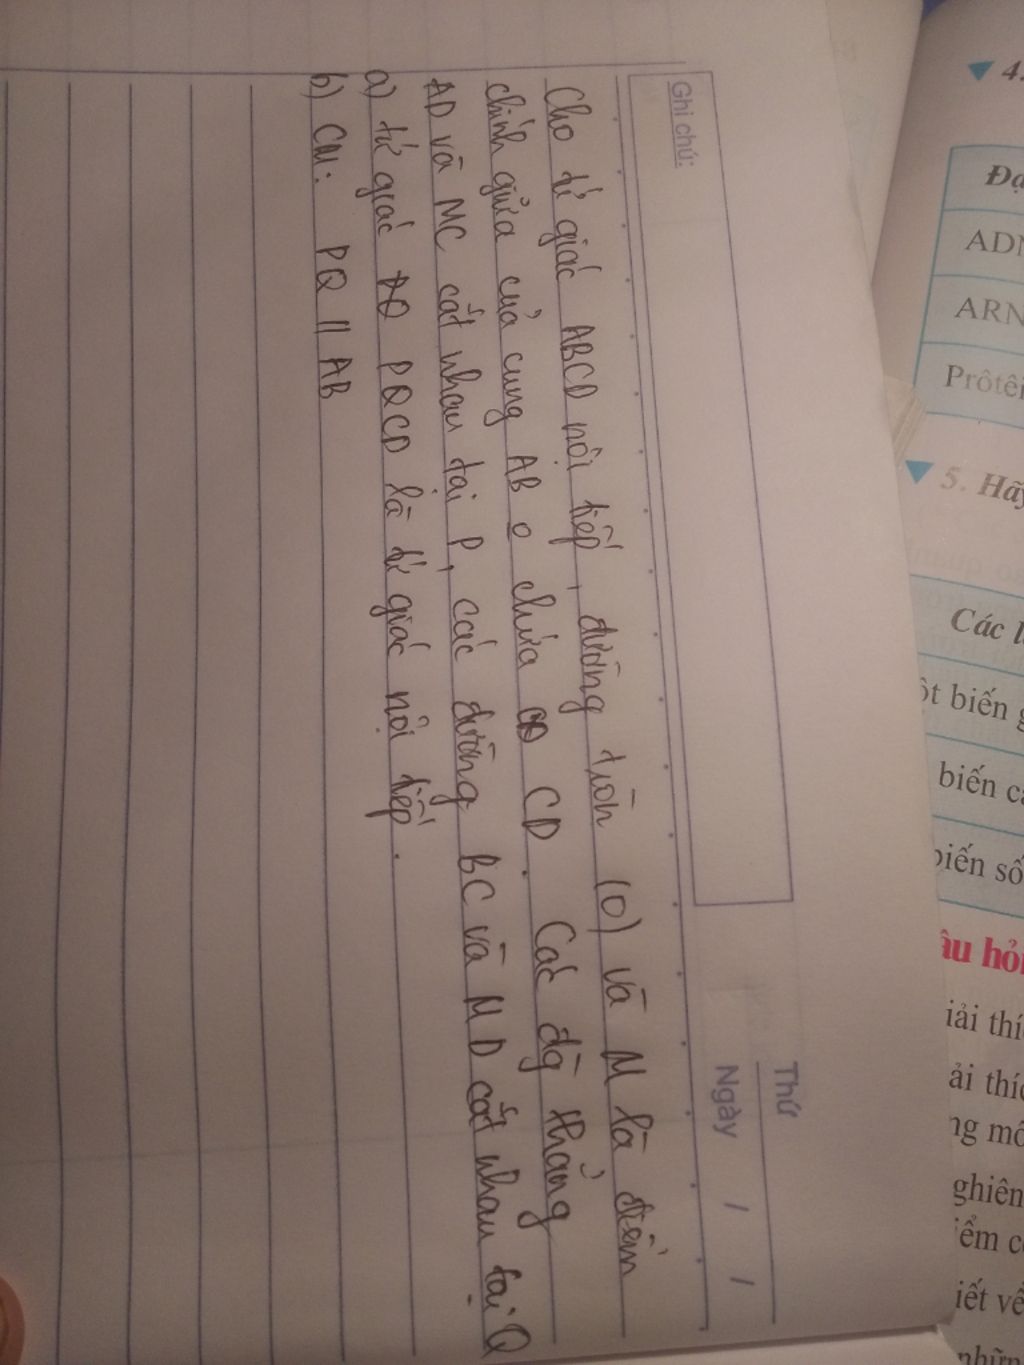 Ghi chú:
Thứ
Ngày / /
Cho tứ giác ABCD nội tiếp, đường tròn (O) và M là điểm
chính giữa của cung AB o chứa CD. Các đg thẳng
AD và MC cắt nhau tại P, các đường BC và MD cắt nhau tại Q
a) tứ giác PQCD là tứ giác nội tiếp.
b) CM: PQ // AB
4.
ADN
ARN
Prôtêi
5. Hã
Các l
ột biến g
biến c
biến số
âu hỏi
iải thí
ải thíc
ng mô
ghiên
iểm c
iết về